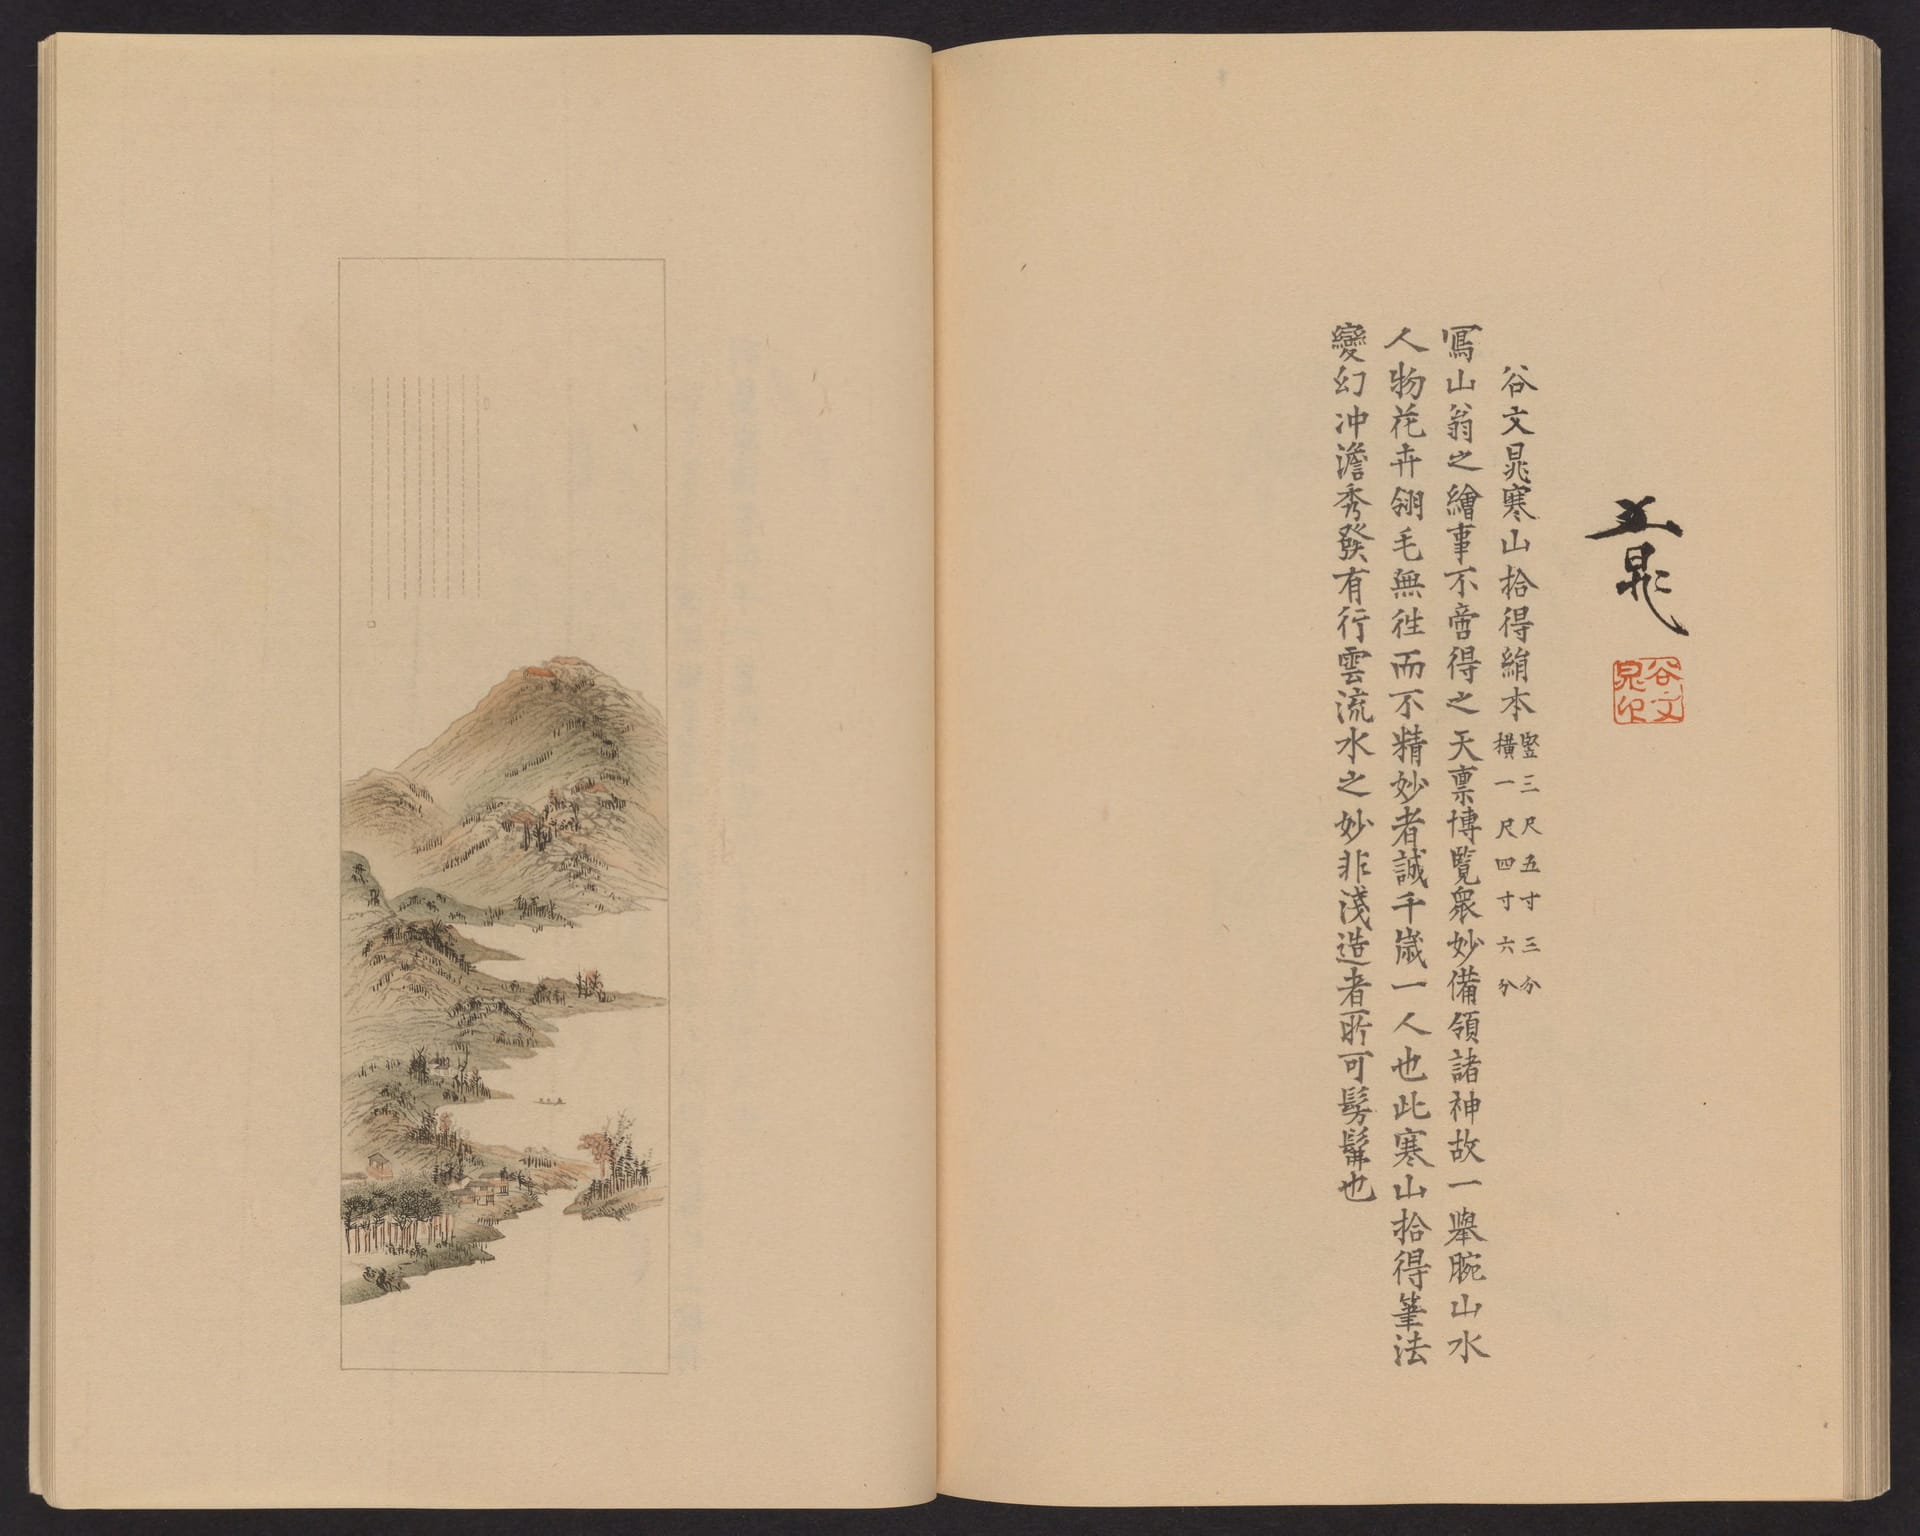 文晁
谷文晁印
谷文晁寒山拾得絹本 竪三尺五寸三分 横一尺四寸六分
寫山翁之繪事不啻得之天禀博覧衆妙備領諸神故一擧腕山水
人物花卉翎毛無徃而不精妙者誠千歳一人也此寒山拾得筆法
變幻冲澹秀發有行雲流水之妙非淺造者所可髣髴也